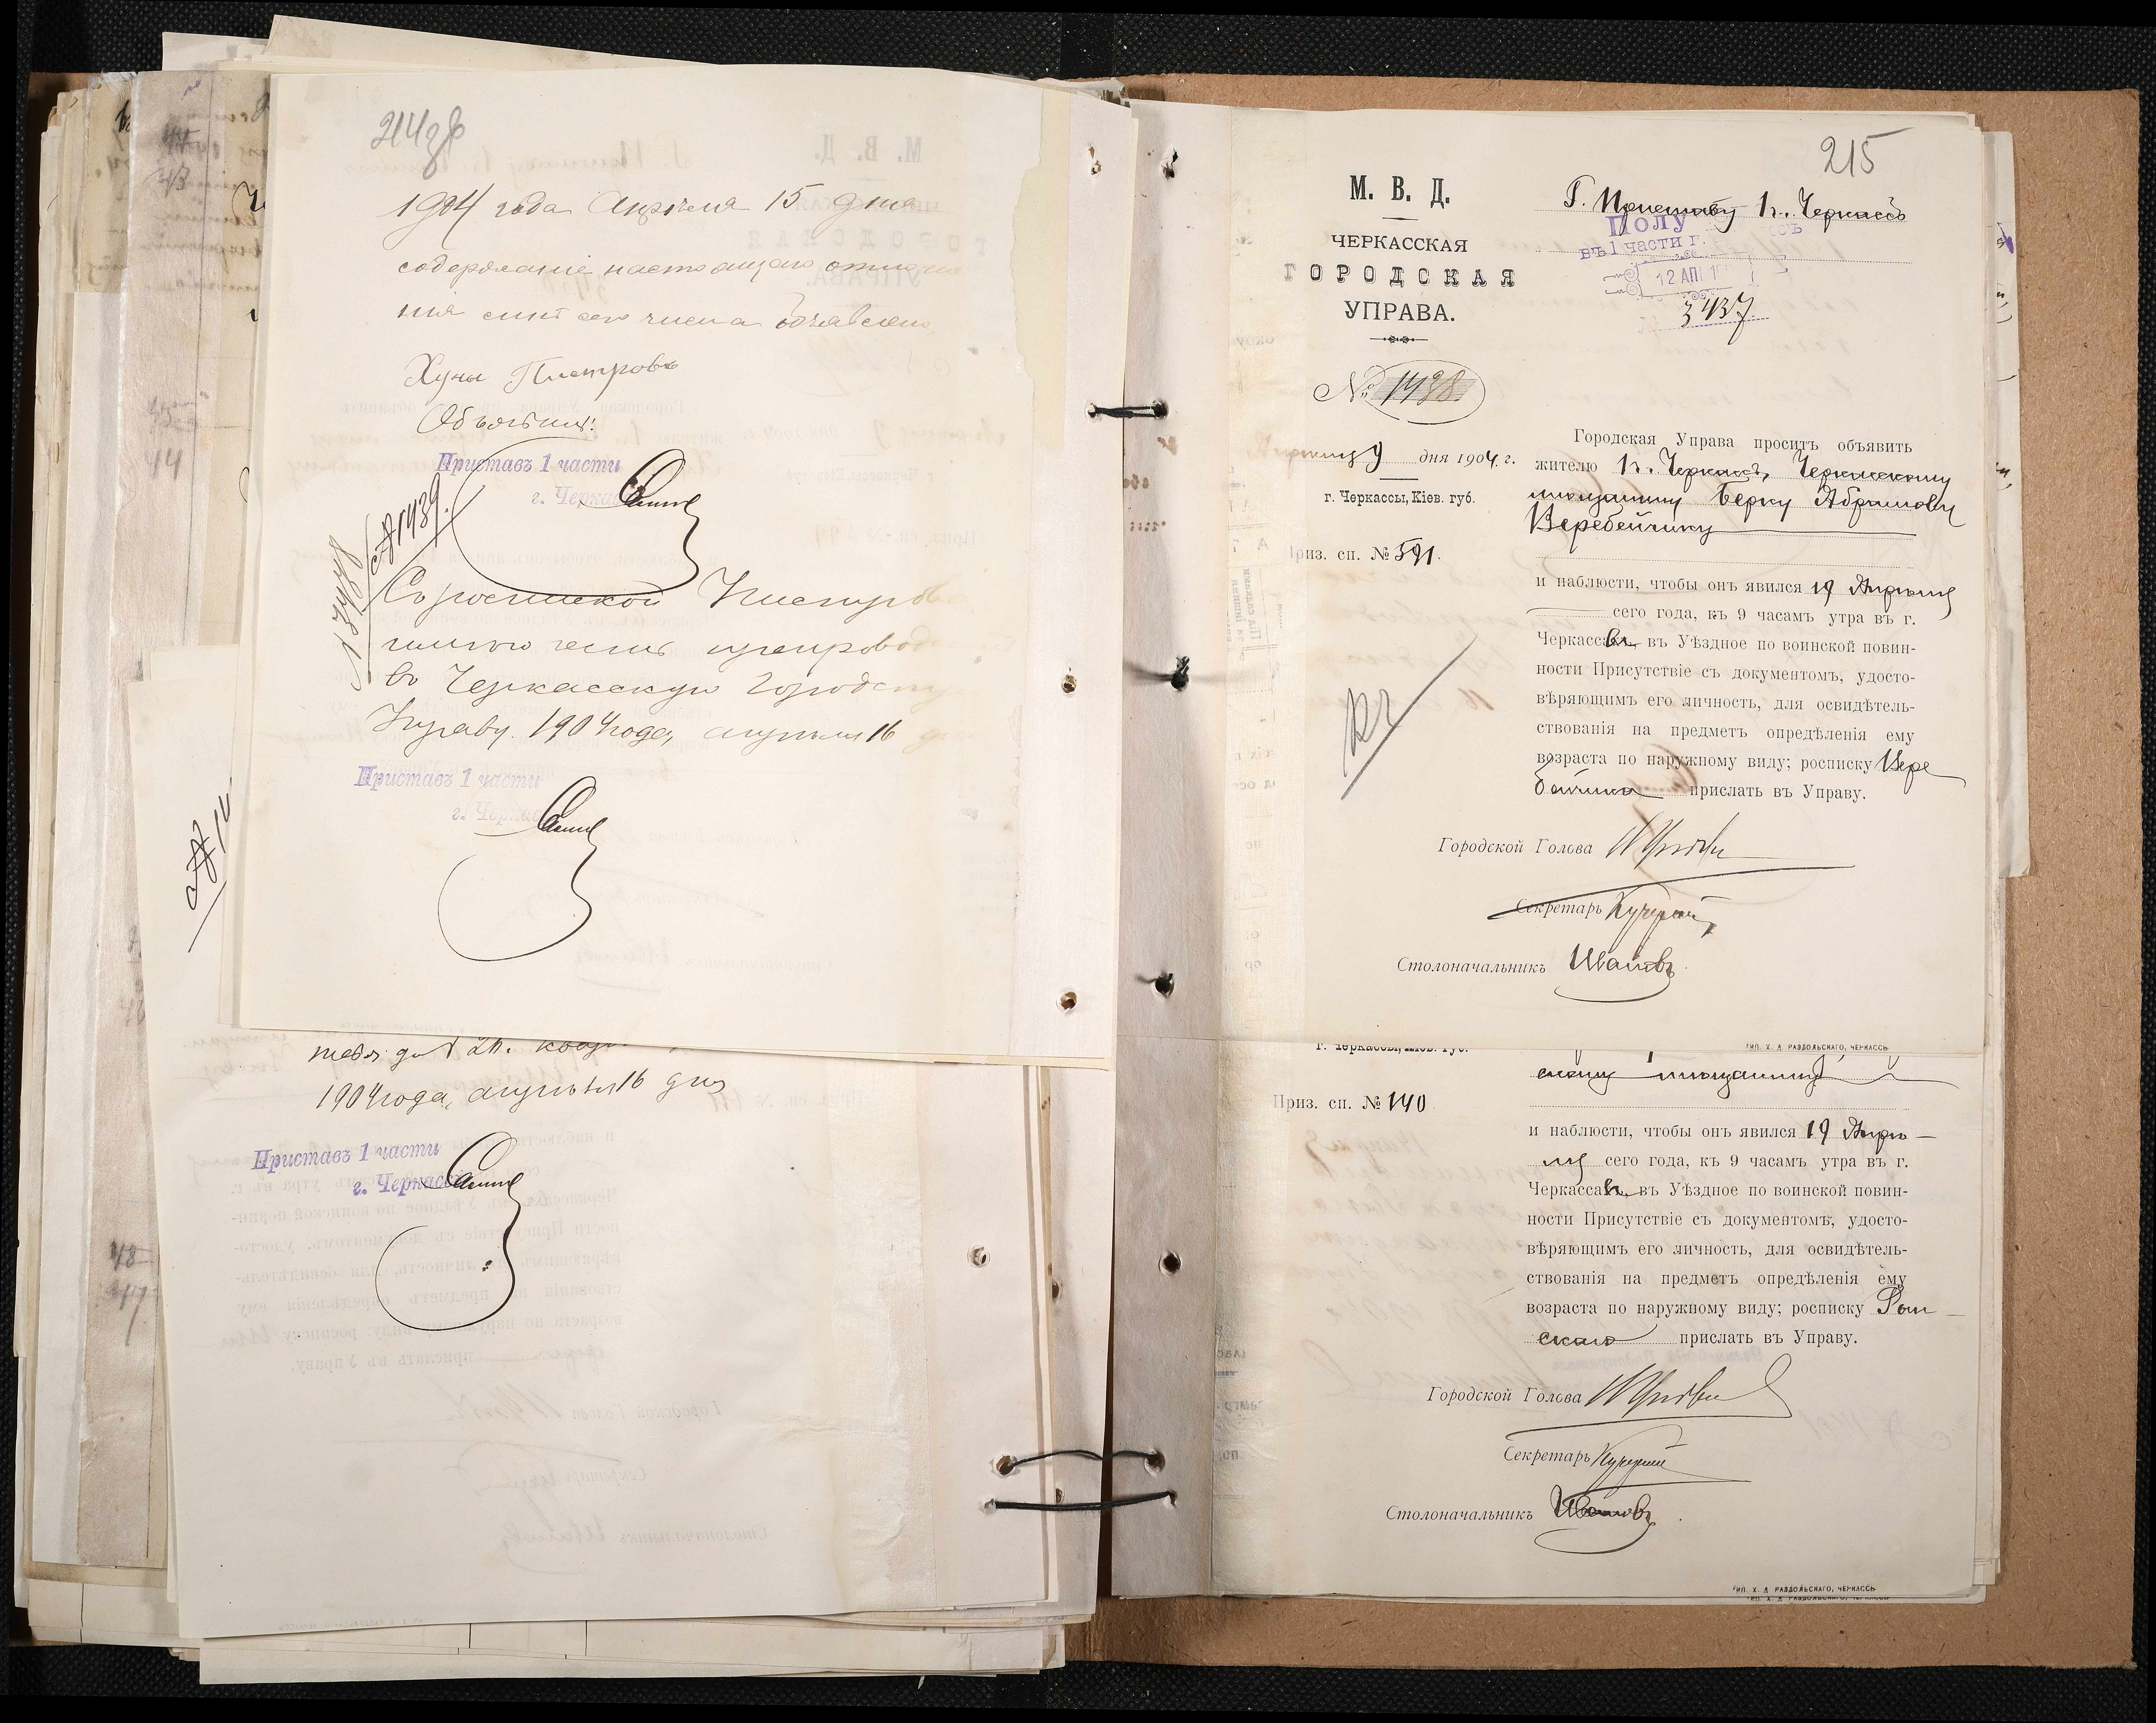 214 об
1904 года Апрѣля 15 дня
содержаніе настоящаго отноше
нія мнѣ сего числа объявлено,
Объявилъ:
Приставъ 1 части
г. Черкас
№ 1439
Съ роспиской
въ Черкасскую Городскую
Управу. 1904 года, апрѣля 16
Приставъ 1 части
г. Черкас
1904 года, апрѣля 16 дня
Приставъ 1 части
г. Черкас
44
48
47
215
М. В. Д.
ЧЕРКАССКАЯ
ГОРОДСКАЯ
УПРАВА.
№ 1438
Апрѣля 9 дня 1904 г.
г. Черкассы, Кіев. губ.
Приз. сп. № 591.
Г. Приставу 1 ч. Черкассъ
Полу
въ 1 части г.
12 АП 19
№ 3437
Городская Управа проситъ объявить
жителю 1 ч. Черкассъ, Черкасскому
мѣщанину Берку Абрамову
Веребейчику
и наблюсти, чтобы онъ явился 19 Апрѣля
сего года, къ 9 часамъ утра въ г.
Черкассахъ въ Уѣздное по воинской повин-
ности Присутствіе съ документомъ, удосто-
вѣряющимъ его личность, для освидѣтель-
ствованія на предметъ опредѣленія ему
возраста по наружному виду; росписку Вере
бейчика прислать въ Управу.
Городской Голова
Секретарь
Столоначальникъ Ивановъ
ТИП. Х. А. РАЗДОЛЬСКАГО, ЧЕРКАССЫ
г. Черкассы, Кіев. губ.
скому мѣщанину
Приз. сп. № 140
и наблюсти, чтобы онъ явился 19 Апрѣ-
ля сего года, къ 9 часамъ утра въ г.
Черкассахъ въ Уѣздное по воинской повин-
ности Присутствіе съ документомъ, удосто-
вѣряющимъ его личность, для освидѣтель-
ствованія на предметъ опредѣленія ему
возраста по наружному виду; росписку
скаго прислать въ Управу.
Городской Голова
Секретарь
Столоначальникъ Ивановъ
ТИП. Х. А. РАЗДОЛЬСКАГО, ЧЕРКАССЫ